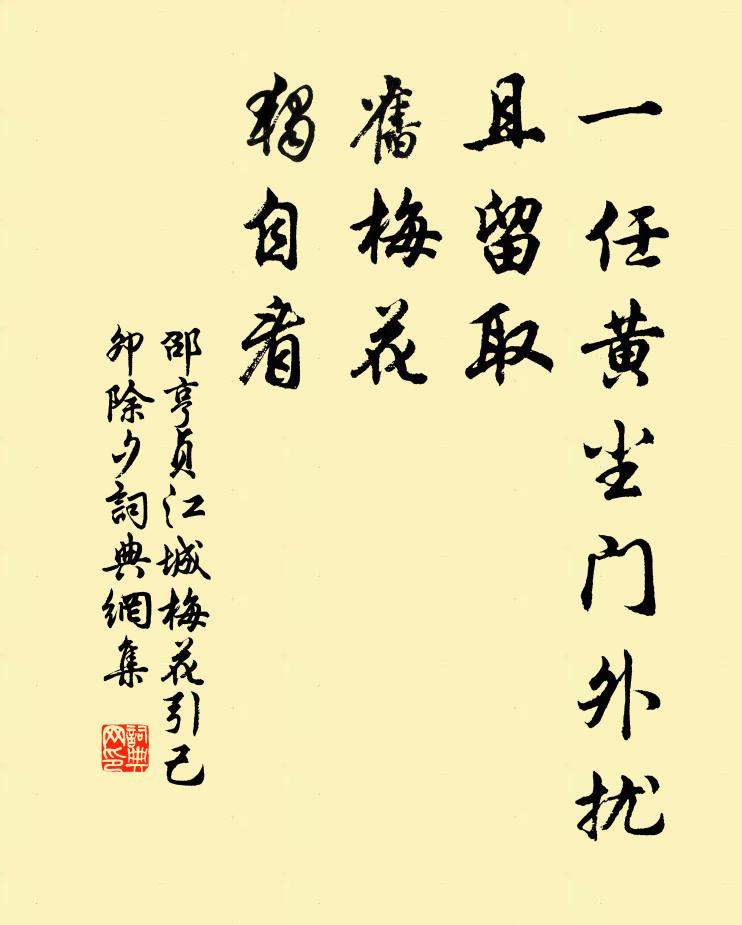 一任黄尘门外扰
且留取
舊梅花
独自看
邵亨貞江城梅花引己
卯除夕詞典網集
詞典网印